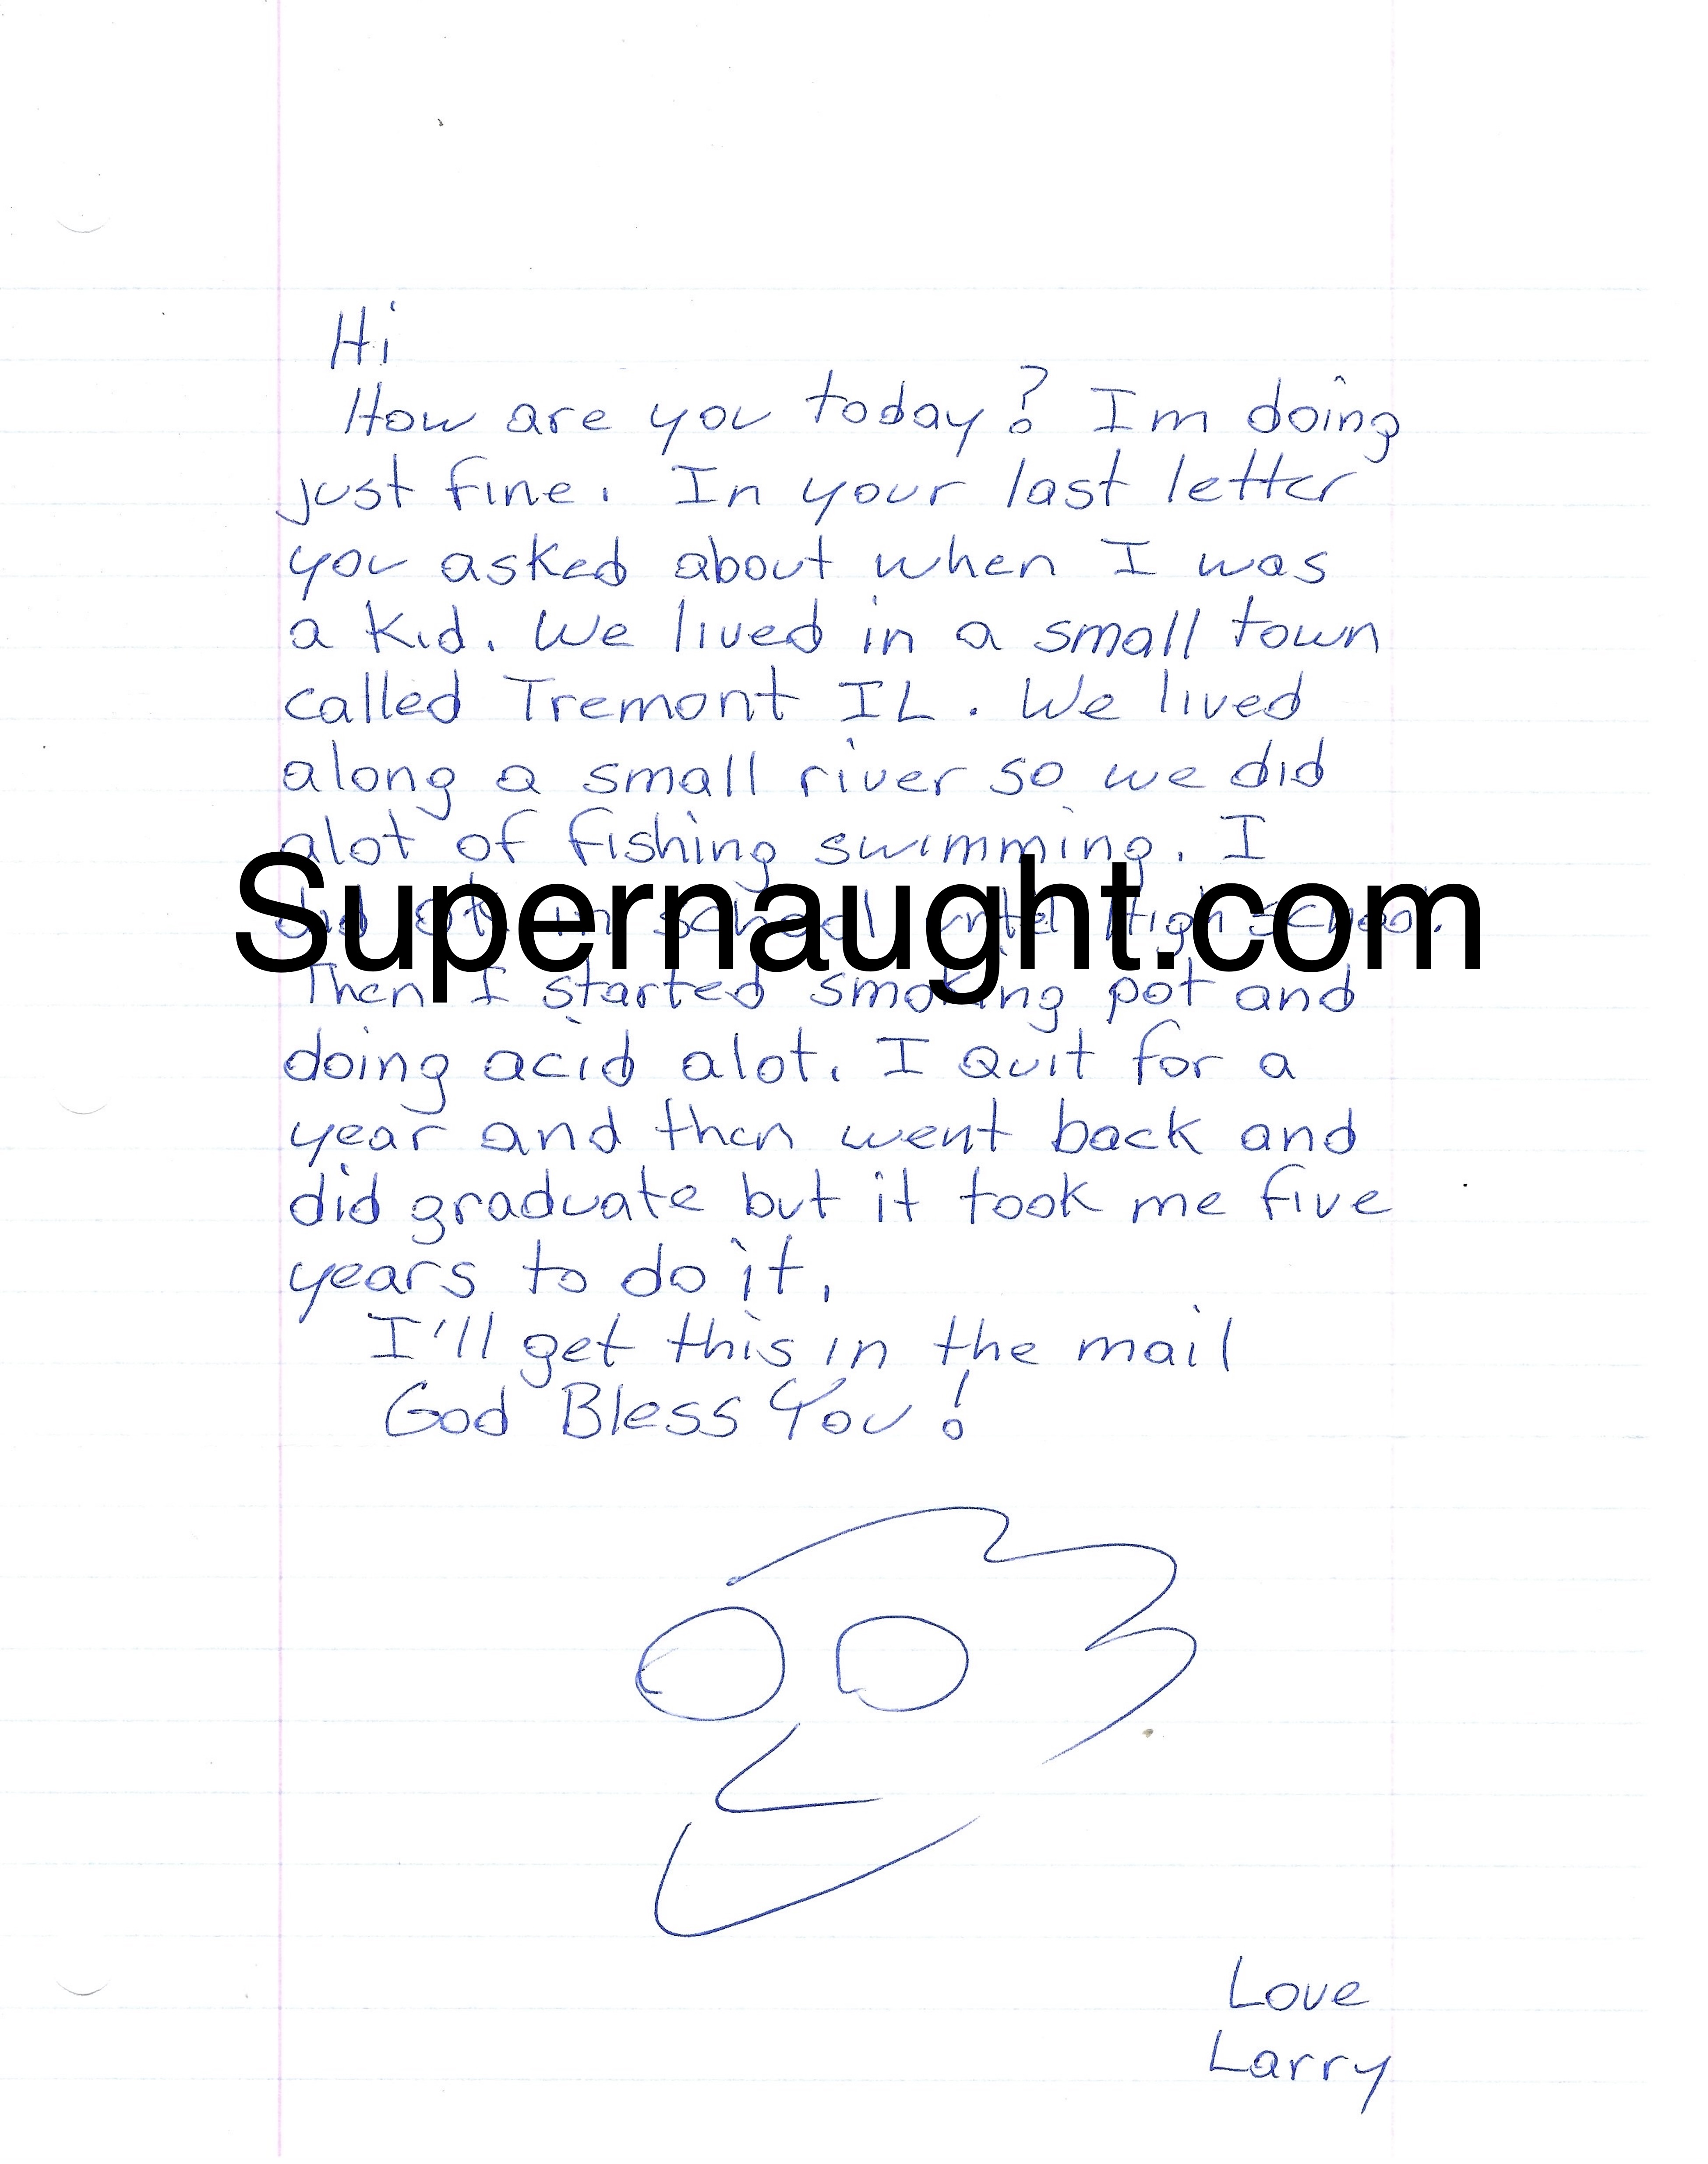 Hi
How are you today? Im doing
just fine. In your last letter
you asked about when I was
a kid. We lived in a small town
called Tremont IL. We lived
along a small river so we did
alot of fishing swimming. I
Supernaught.com
did ok in school until High school.
Then I started smoking pot and
doing acid alot. I Quit for a
year and then went back and
did graduate but it took me five
years to do it.
I'll get this in the mail
God Bless You!
Love
Larry